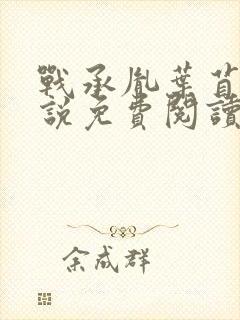 戰承胤葉苜
說免費閱讀
余成群